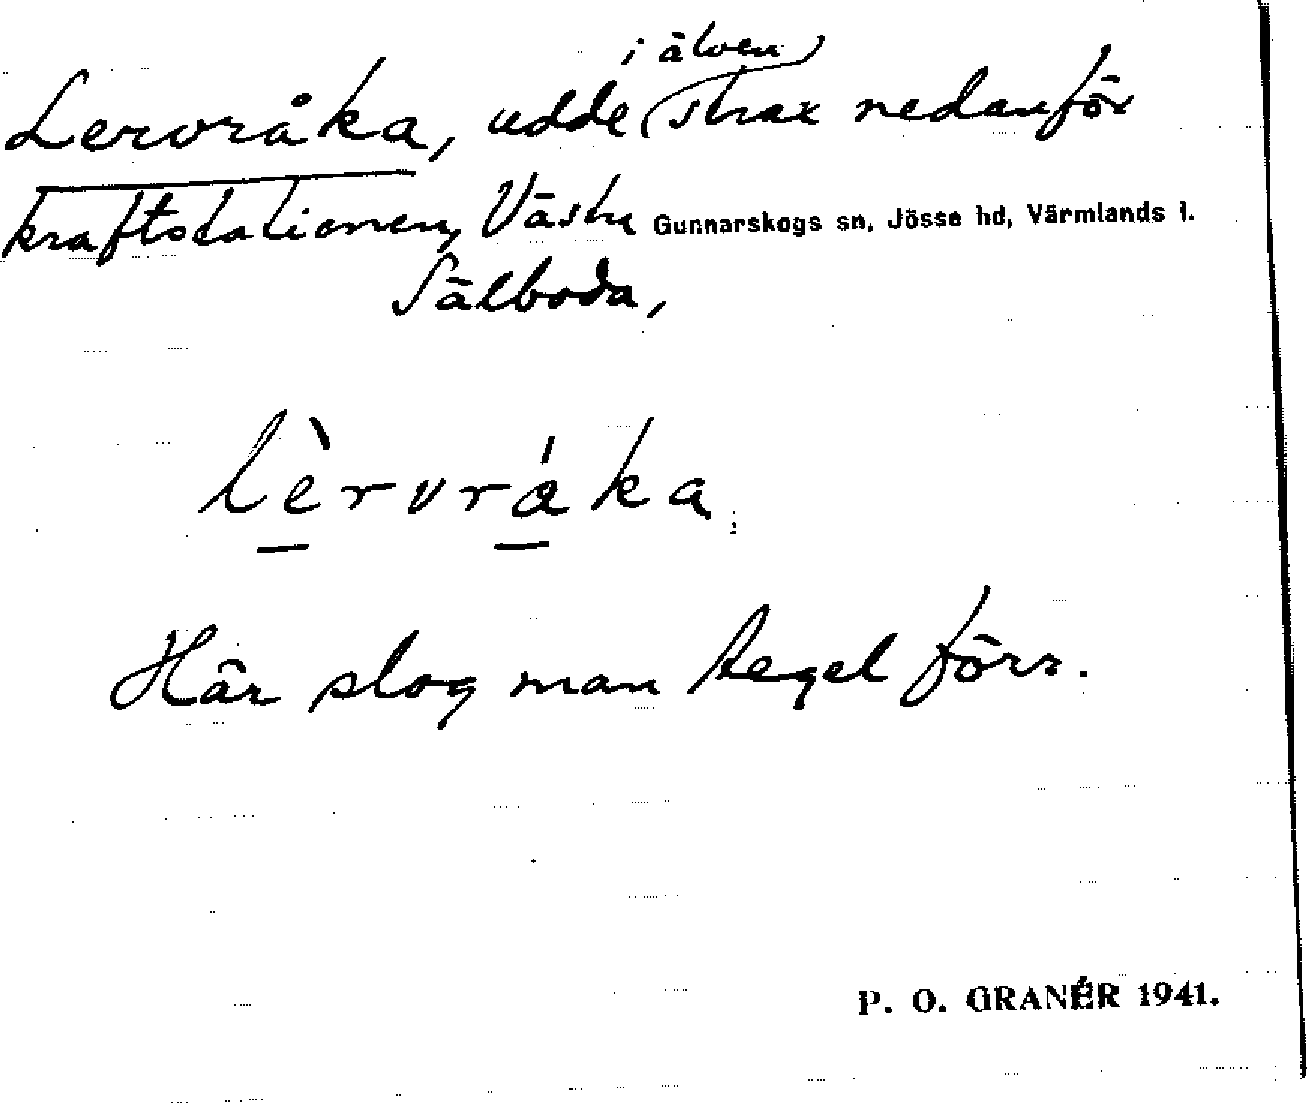 i älven
Lervråka, udde strax nedanför
kraftstationen, Västra Gunnarskogs sn, Jösse hd, Värmlands l.
Sälboda,
lèrvråka
Här slog man tegel förr.
P. O. GRANÉR 1941.